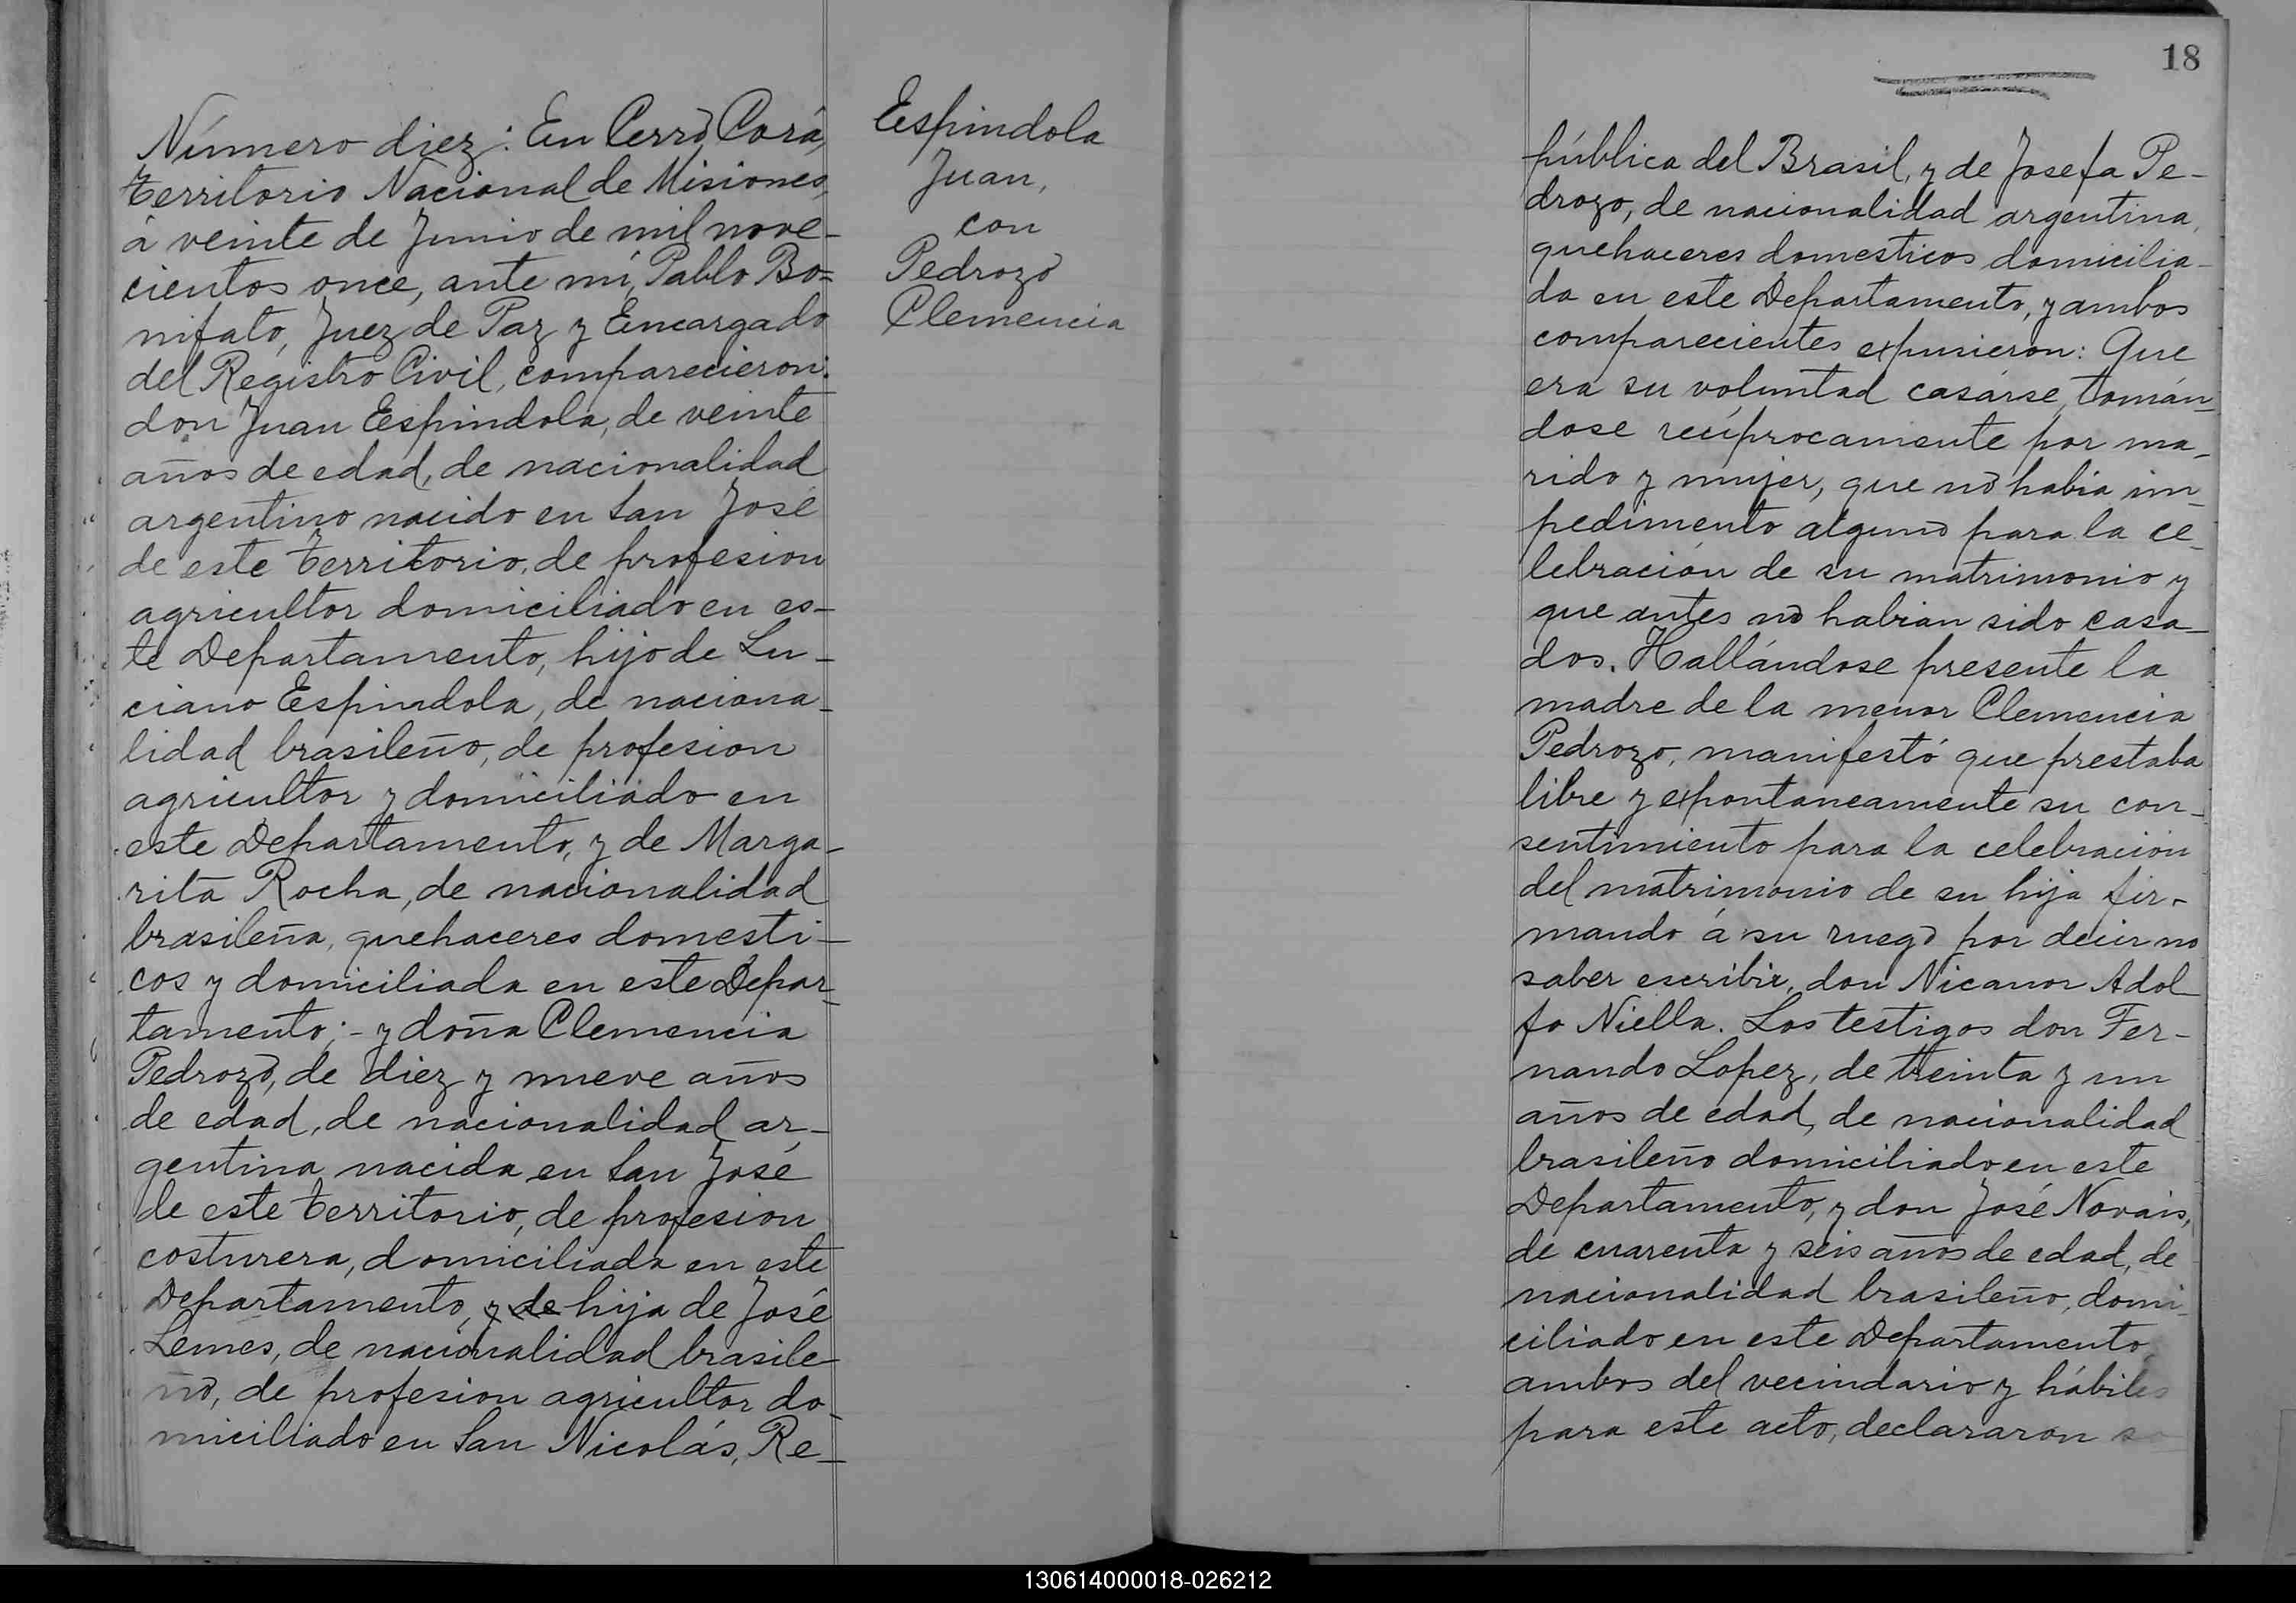 Número diez: En Cerro Corá,
territorio Nacional de Misiones,
á veinte de Junio de mil nove-
cientos once, ante mí, Pablo Bo=
nifato, Juez de Paz y Encargado
del Registro Civil, comparecieron:
don Juan Espindola, de veinte
años de edad, de nacionalidad
argentino nacido en San José
de este territorio, de profesion
agricultor domiciliado en es-
te Departamento, hijo de Lu-
ciano Espindola, de naciona-
lidad brasileño, de profesion
agricultor y domiciliado en
este Departamento, y de Marga-
rita Rocha, de nacionalidad
brasileña, quehaceres domesti-
cos y domiciliada en este Depar-
tamento; - y doña Clemencia
Pedrozo, de diez y nueve años
de edad, de nacionalidad ar-
gentina nacida en San José
de este territorio, de profesion
costurera, domiciliada en este
Departamento, y de hija de José
Lemes, de nacionalidad brasile-
ño, de profesion agricultor do-
miciliado en San Nicolás, Re-
Espindola
Juan,
con
Pedrozo
Clemencia
18
pública del Brasil, y de Josefa Pe-
drozo, de nacionalidad argentina,
quehaceres domesticos domicilia-
da en este Departamento, y ambos
comparecientes expusieron: Que
era su voluntad casarse, tomán-
dose recíprocamente por ma-
rido y mujer, que no habia im-
pedimento alguno para la ce-
lebración de su matrimonio y
que antes no habian sido casa-
dos. Hallándose presente la
madre de la menor Clemencia
Pedrozo, manifestó que prestaba
libre y expontaneamente su con-
sentimiento para la celebración
del matrimonio de su hija fir-
mando á su ruego por decir no
saber escribir, don Nicanor Adol
fo Niella. Los testigos don Fer-
nando Lopez, de treinta y un
años de edad, de nacionalidad
brasileño domiciliado en este
Departamento, y don José Novais,
de cuarenta y seis años de edad, de
nacionalidad brasileño, domi-
ciliado en este Departamento,
ambos del vecindario y hábiles
para este acto, declararon
130614000018-026212